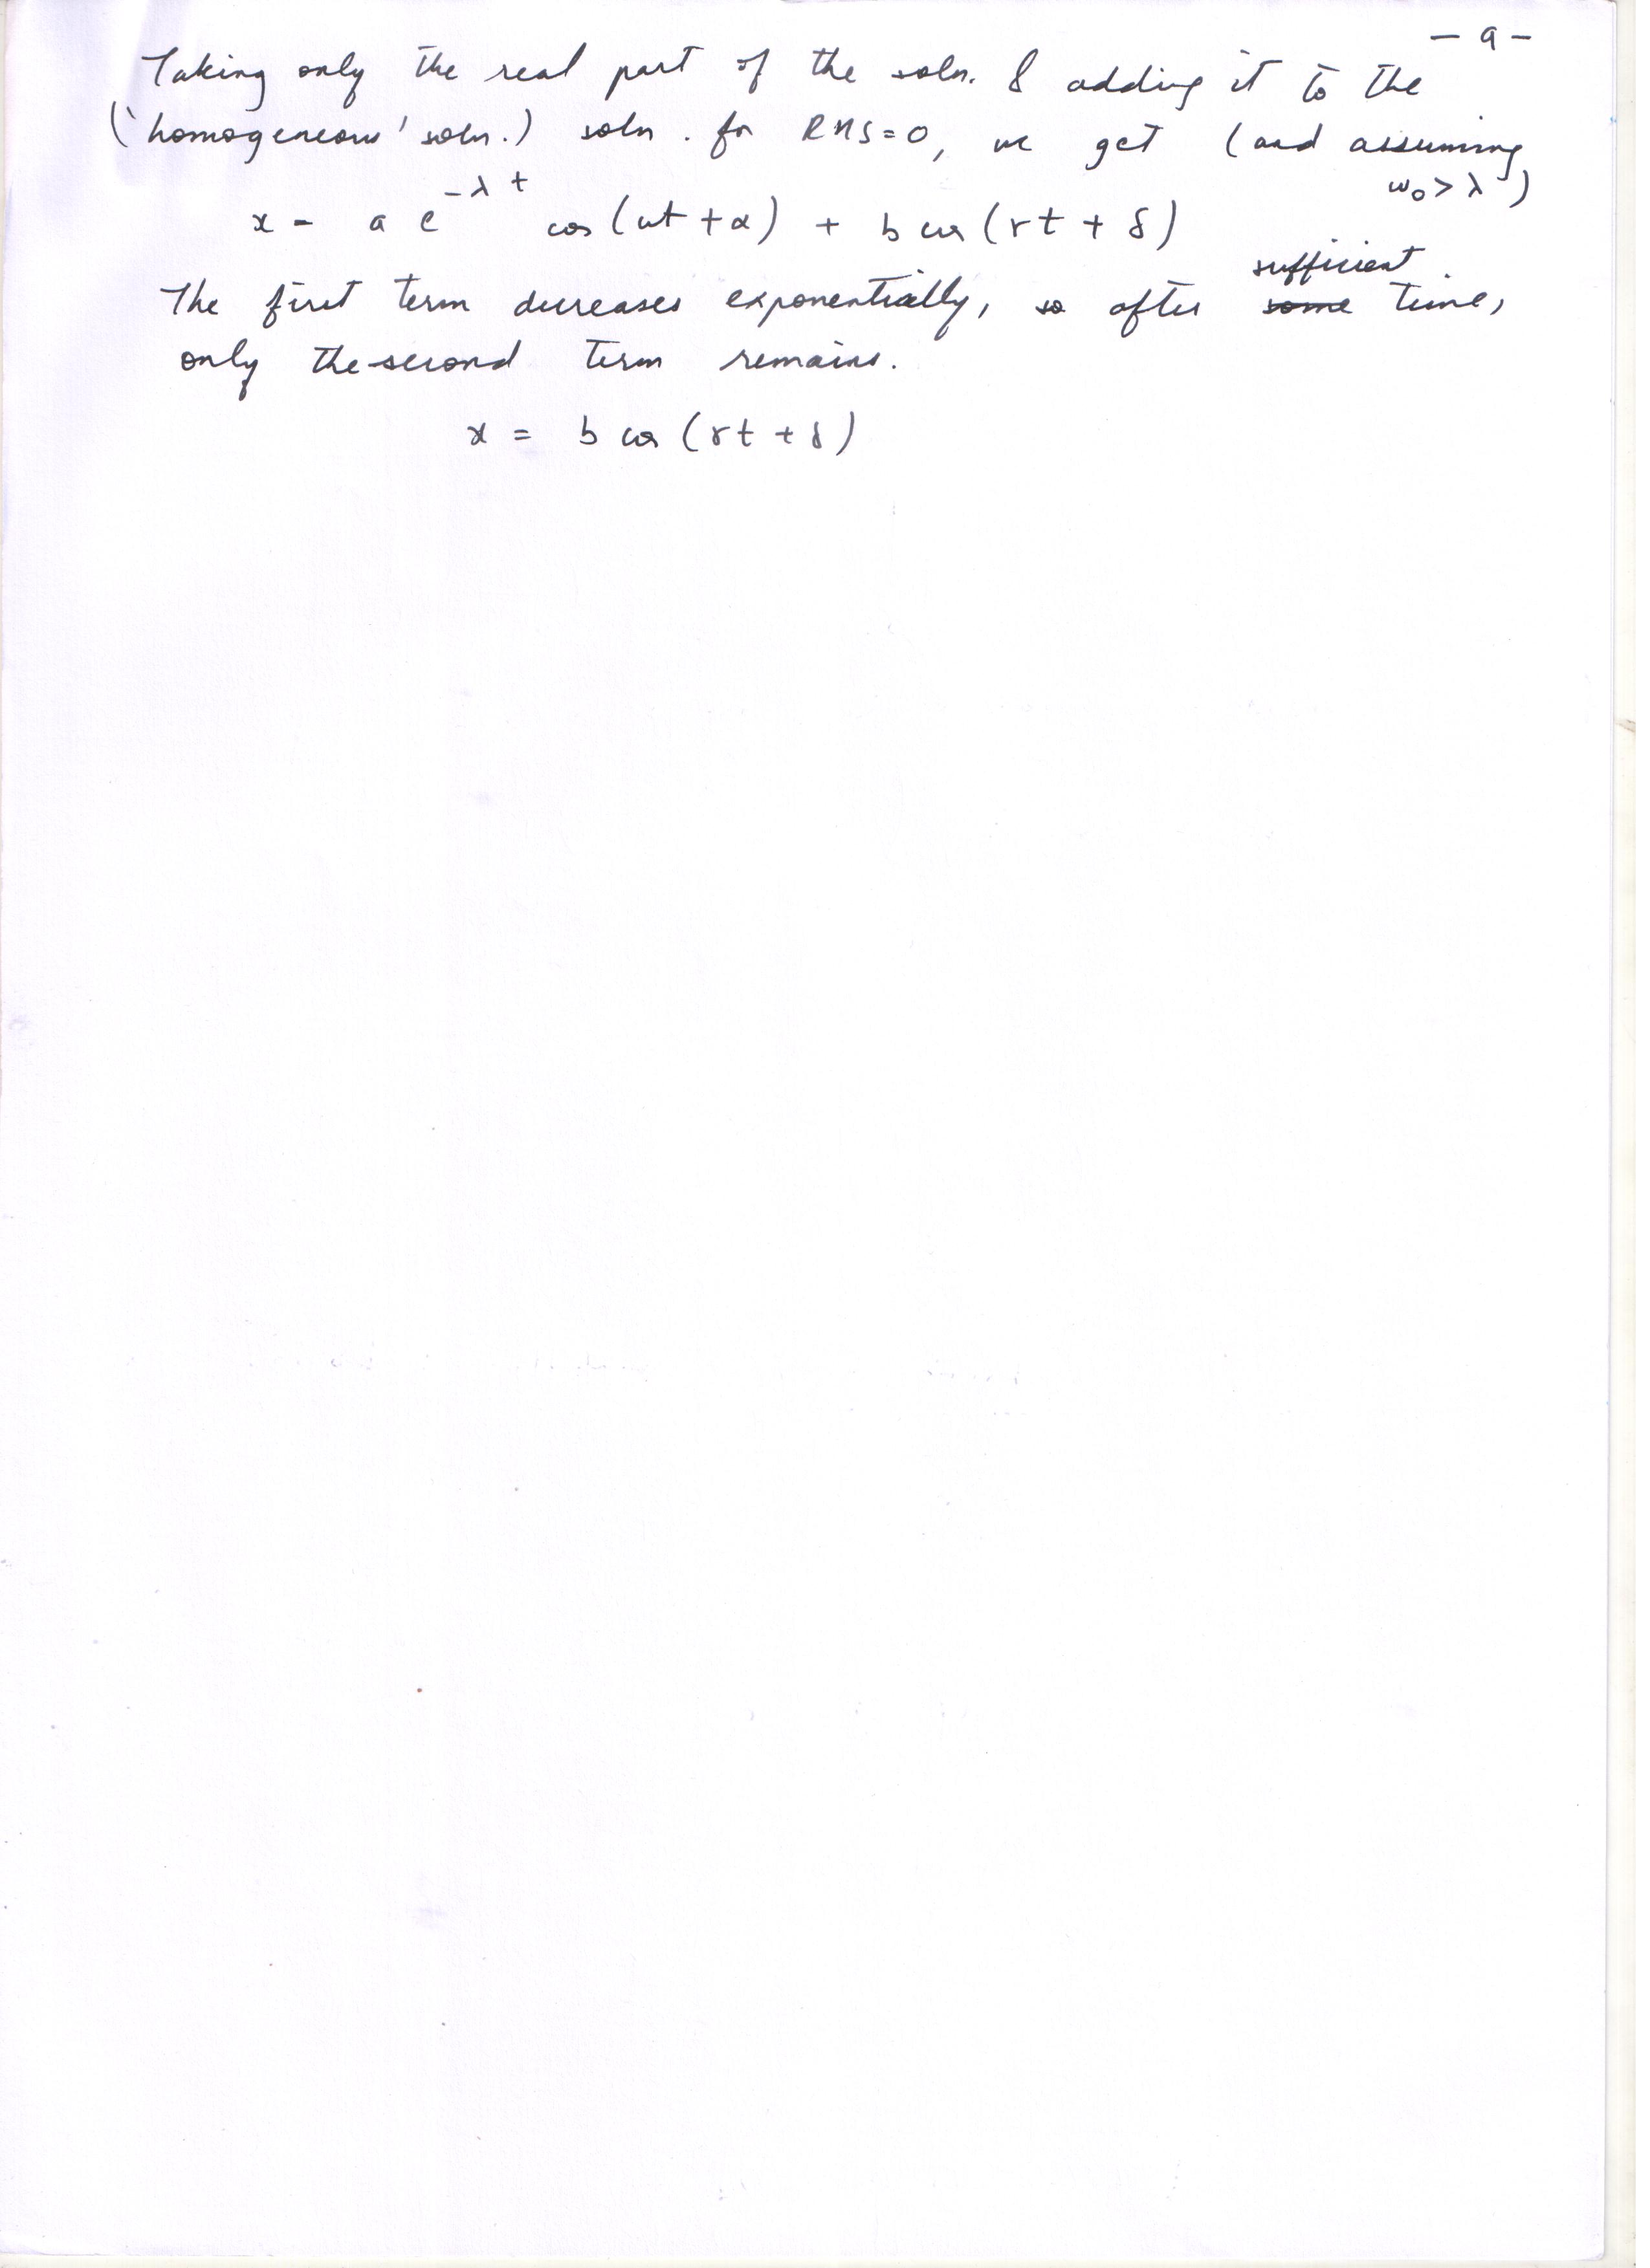 - 9 -
Taking only the real part of the soln. & adding it to the
('homogeneous' soln.) soln. for RHS=0, we get (and assuming
ω₀>λ)
x = a e^{-λt} cos(ωt+α) + b cos(γt + δ)
sufficient
The first term decreases exponentially, so after ~~some~~ time,
only the second term remains.
x = b cos (γt + δ)